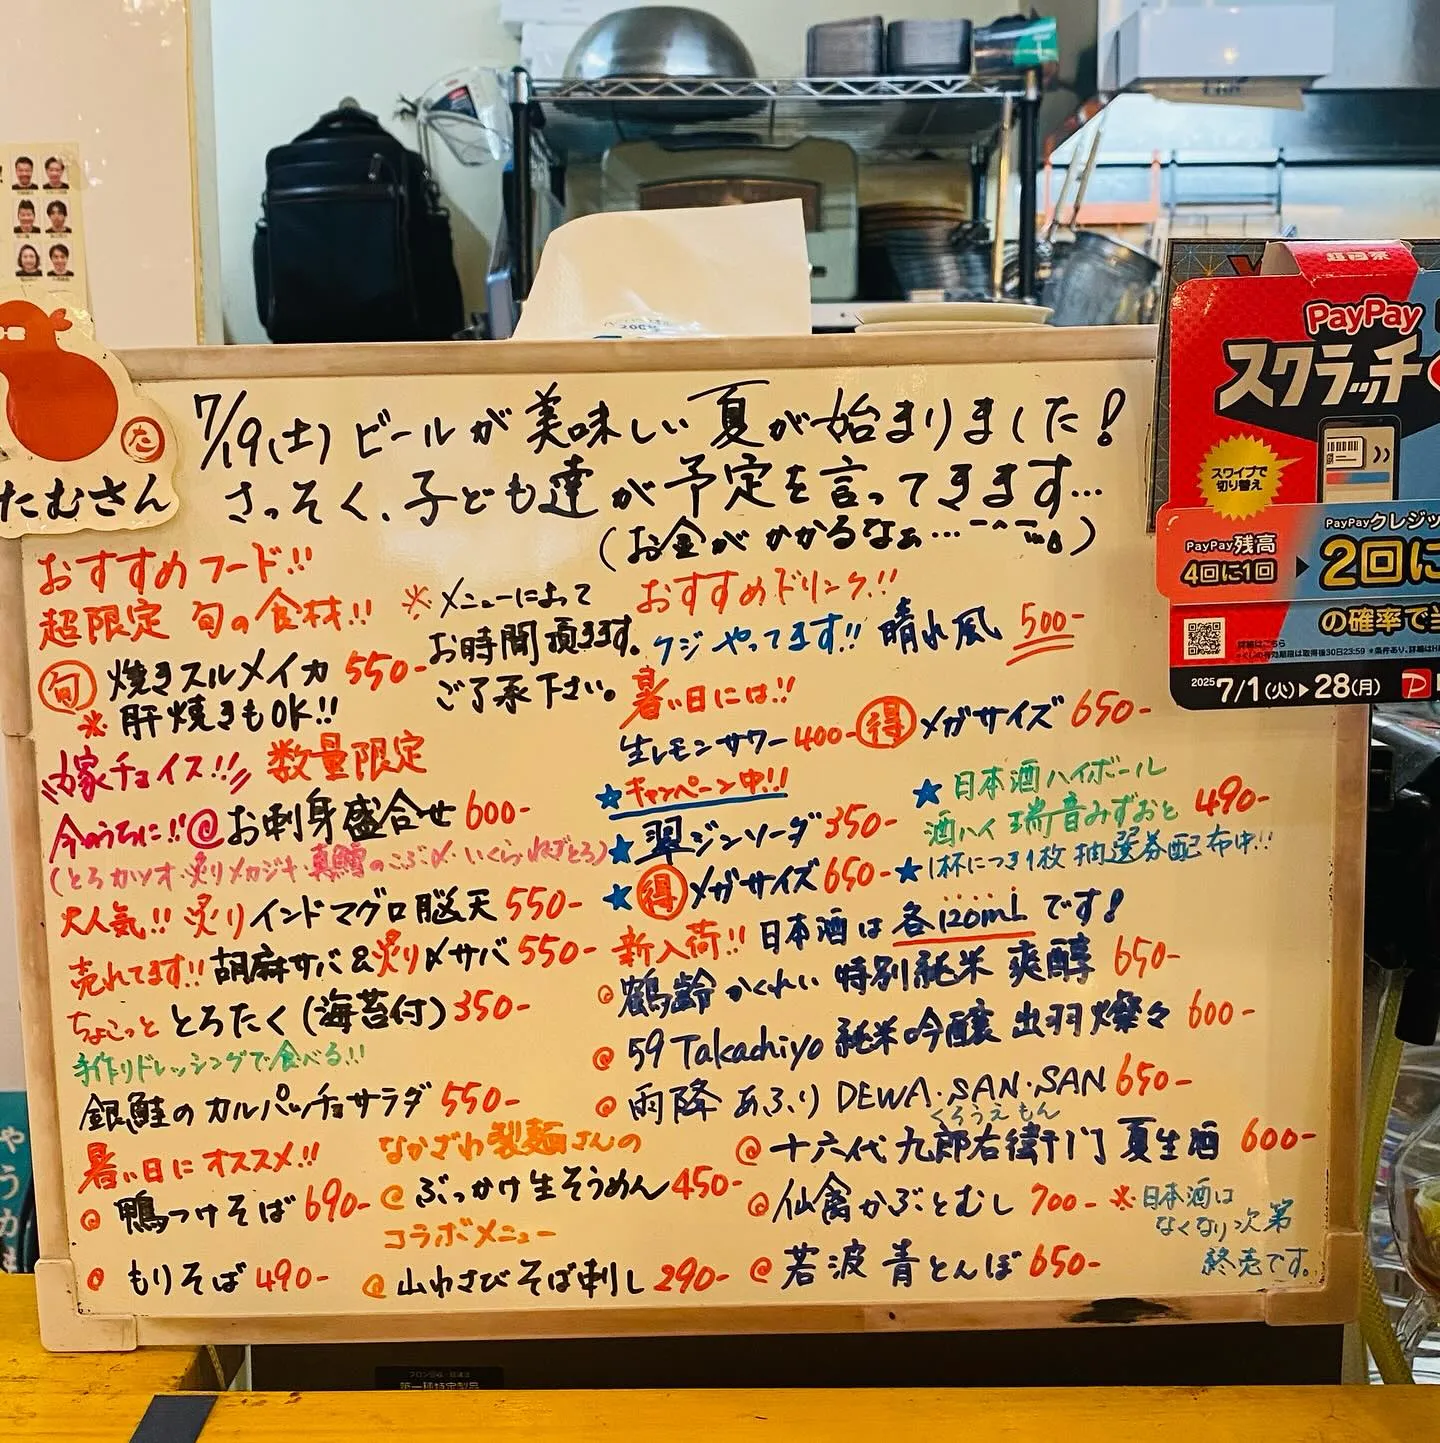 7/19(土) ビールが美味しい夏が始まりました!
さっそく、子ども達が予定を言ってきます…
(お金がかかるなぁ…
たむさん
た
おすすめフード!!
超限定 旬の食材!!
旬 焼きスルメイカ 550-
※肝焼きもOK!!
※メニューによって
お時間頂きます。
ご了承下さい。
嫁チョイス!! 数量限定
今のうちに!! @お刺身盛合せ 600-
(とろカツオ・炙りメカジキ・真鯛のこぶ〆・いくら・ねぎとろ)
大人気!! 炙りインドマグロ脳天 550-
売れてます!! 胡麻サバ&炙り〆サバ 550-
ちょこっと とろたく(海苔付) 350-
手作りドレッシングで食べる!!
銀鮭のカルパッチョサラダ 550-
暑い日にオススメ!!
@ 鴨つけそば 690-
@ もりそば 490-
なかざわ製麺さんの
@ ぶっかけ生そうめん 450-
コラボメニュー
@ 山わさびそば刺し 290-
おすすめドリンク!!
クジやってます!! 晴れ風 500-
暑い日には!!
生レモンサワー 400- 得 メガサイズ 650-
★キャンペーン中!!
★翠ジンソーダ 350-
★得 メガサイズ 650-
★日本酒ハイボール
酒ハイ 瑞音みずおと 490-
★1杯につき1枚 抽選券配布中!!
新入荷!! 日本酒は各120mlです!
@ 鶴齢 かくれい 特別純米 爽醇 650-
@ 59 Takachiyo 純米吟醸 出羽燦々 600-
@ 雨降 あふり DEWA・SAN・SAN 650-
くろうえもん
@ 十六代 九郎右衛門 夏生酒 600-
@ 仙禽かぶとむし 700-
@ 若波 青とんぼ 650-
※日本酒は
なくなり次第
終売です。
超回祭
PayPay
スクラッチ
スワイプで
切り替え
PayPay残高
4回に1回
PayPayクレジッ
2回に
の確率で当
2025 7/1(火)▶28(月)
やうか